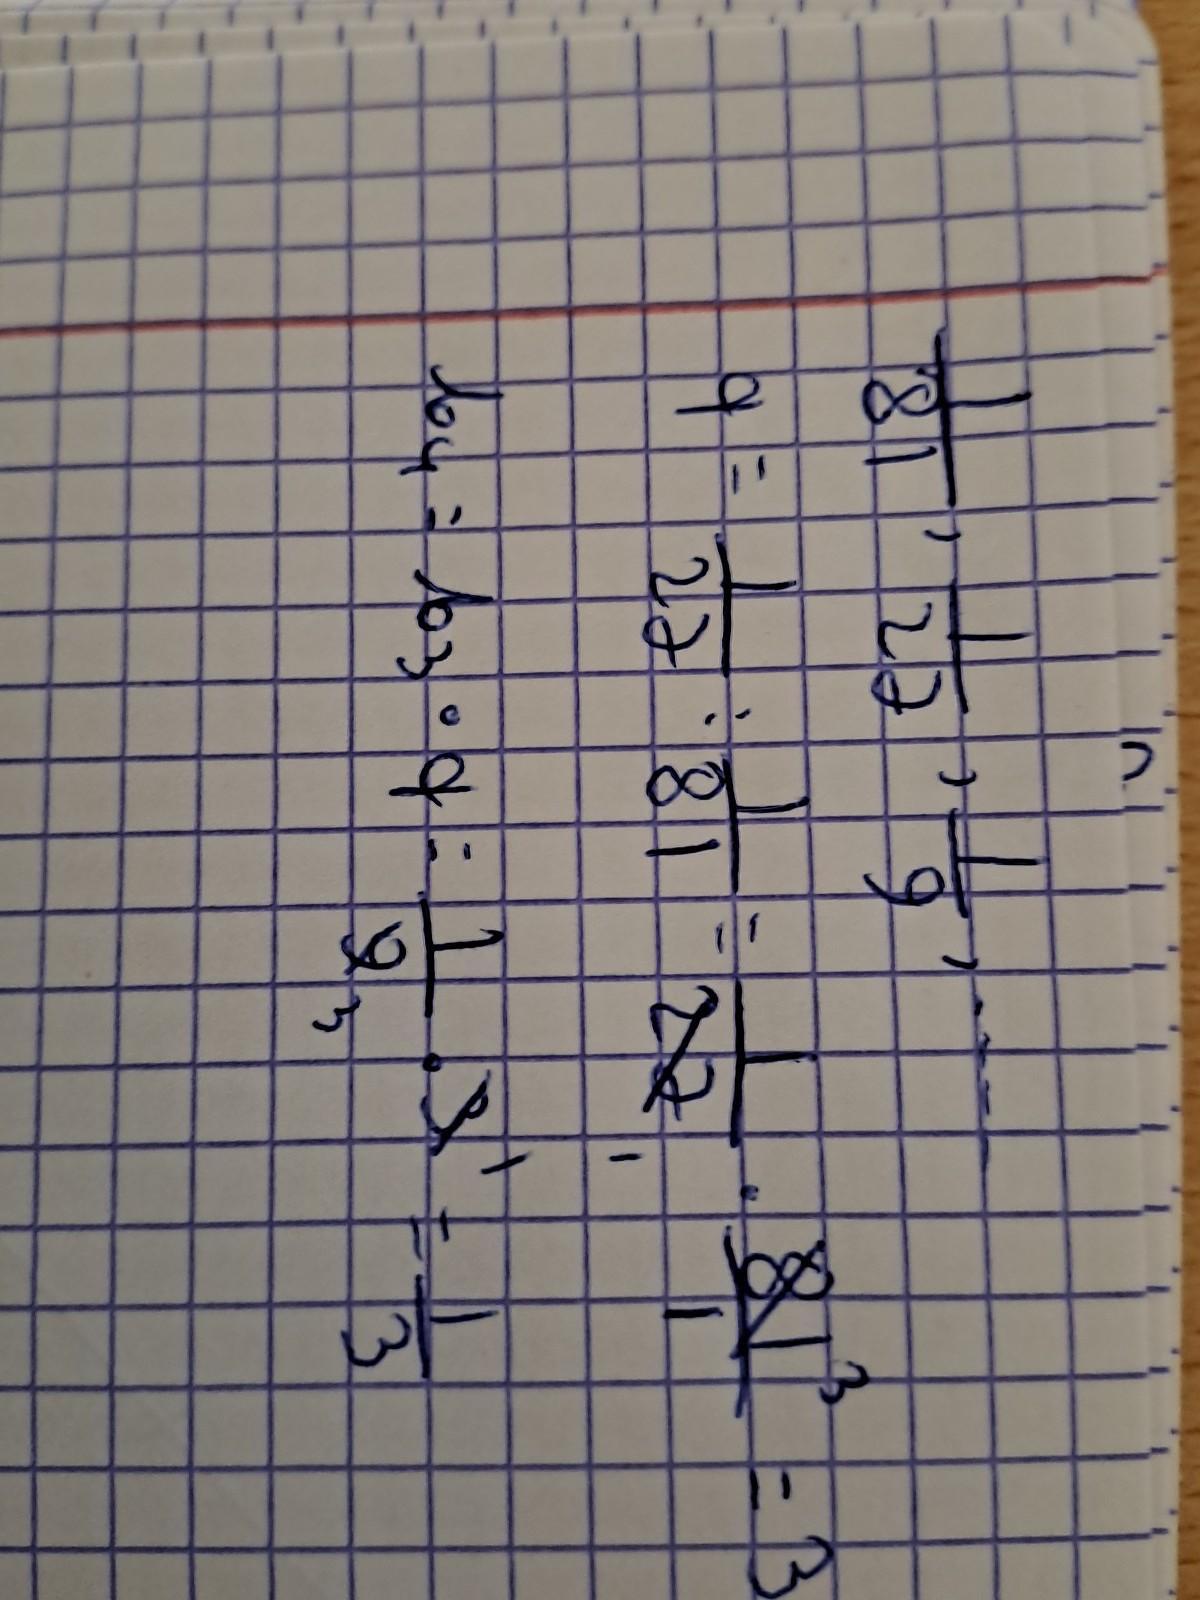 1/81, 1/27, 1/9, ----
q = 1/27 : 1/81 = 1/27 · 81³/1 = 3
b₄ = b₃ · q = 1/9₃ · 3¹ = 1/3